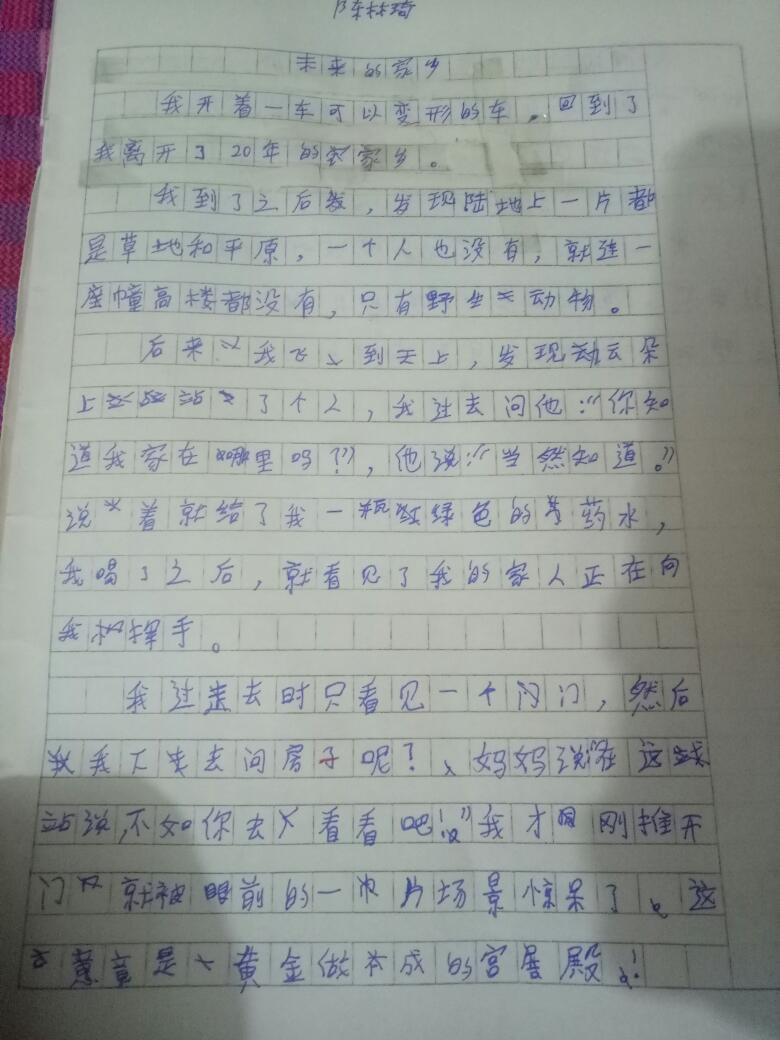 陈林琦
未来的家乡
我开着一车可以变形的车，回到了
我离开了20年的家乡。
我到了之后，发现陆地上一片都
是草地和平原，一个人也没有，就连一
座幢高楼都没有，只有野生动物。
后来，我飞到天上，发现云朵
上站了个人，我过去问他：“你知
道我家在哪里吗？”，他说：“当然知道。”
说着就给了我一瓶绿色的药水，
我喝了之后，就看见了我的家人正在向
我挥手。
我过去时只看见一个门，然后
我去问房子呢？妈妈说：“在这
站说，不如你去看看吧！”我才刚推开
门就被眼前的一片场景惊呆了。这
竟是黄金做成的宫殿！